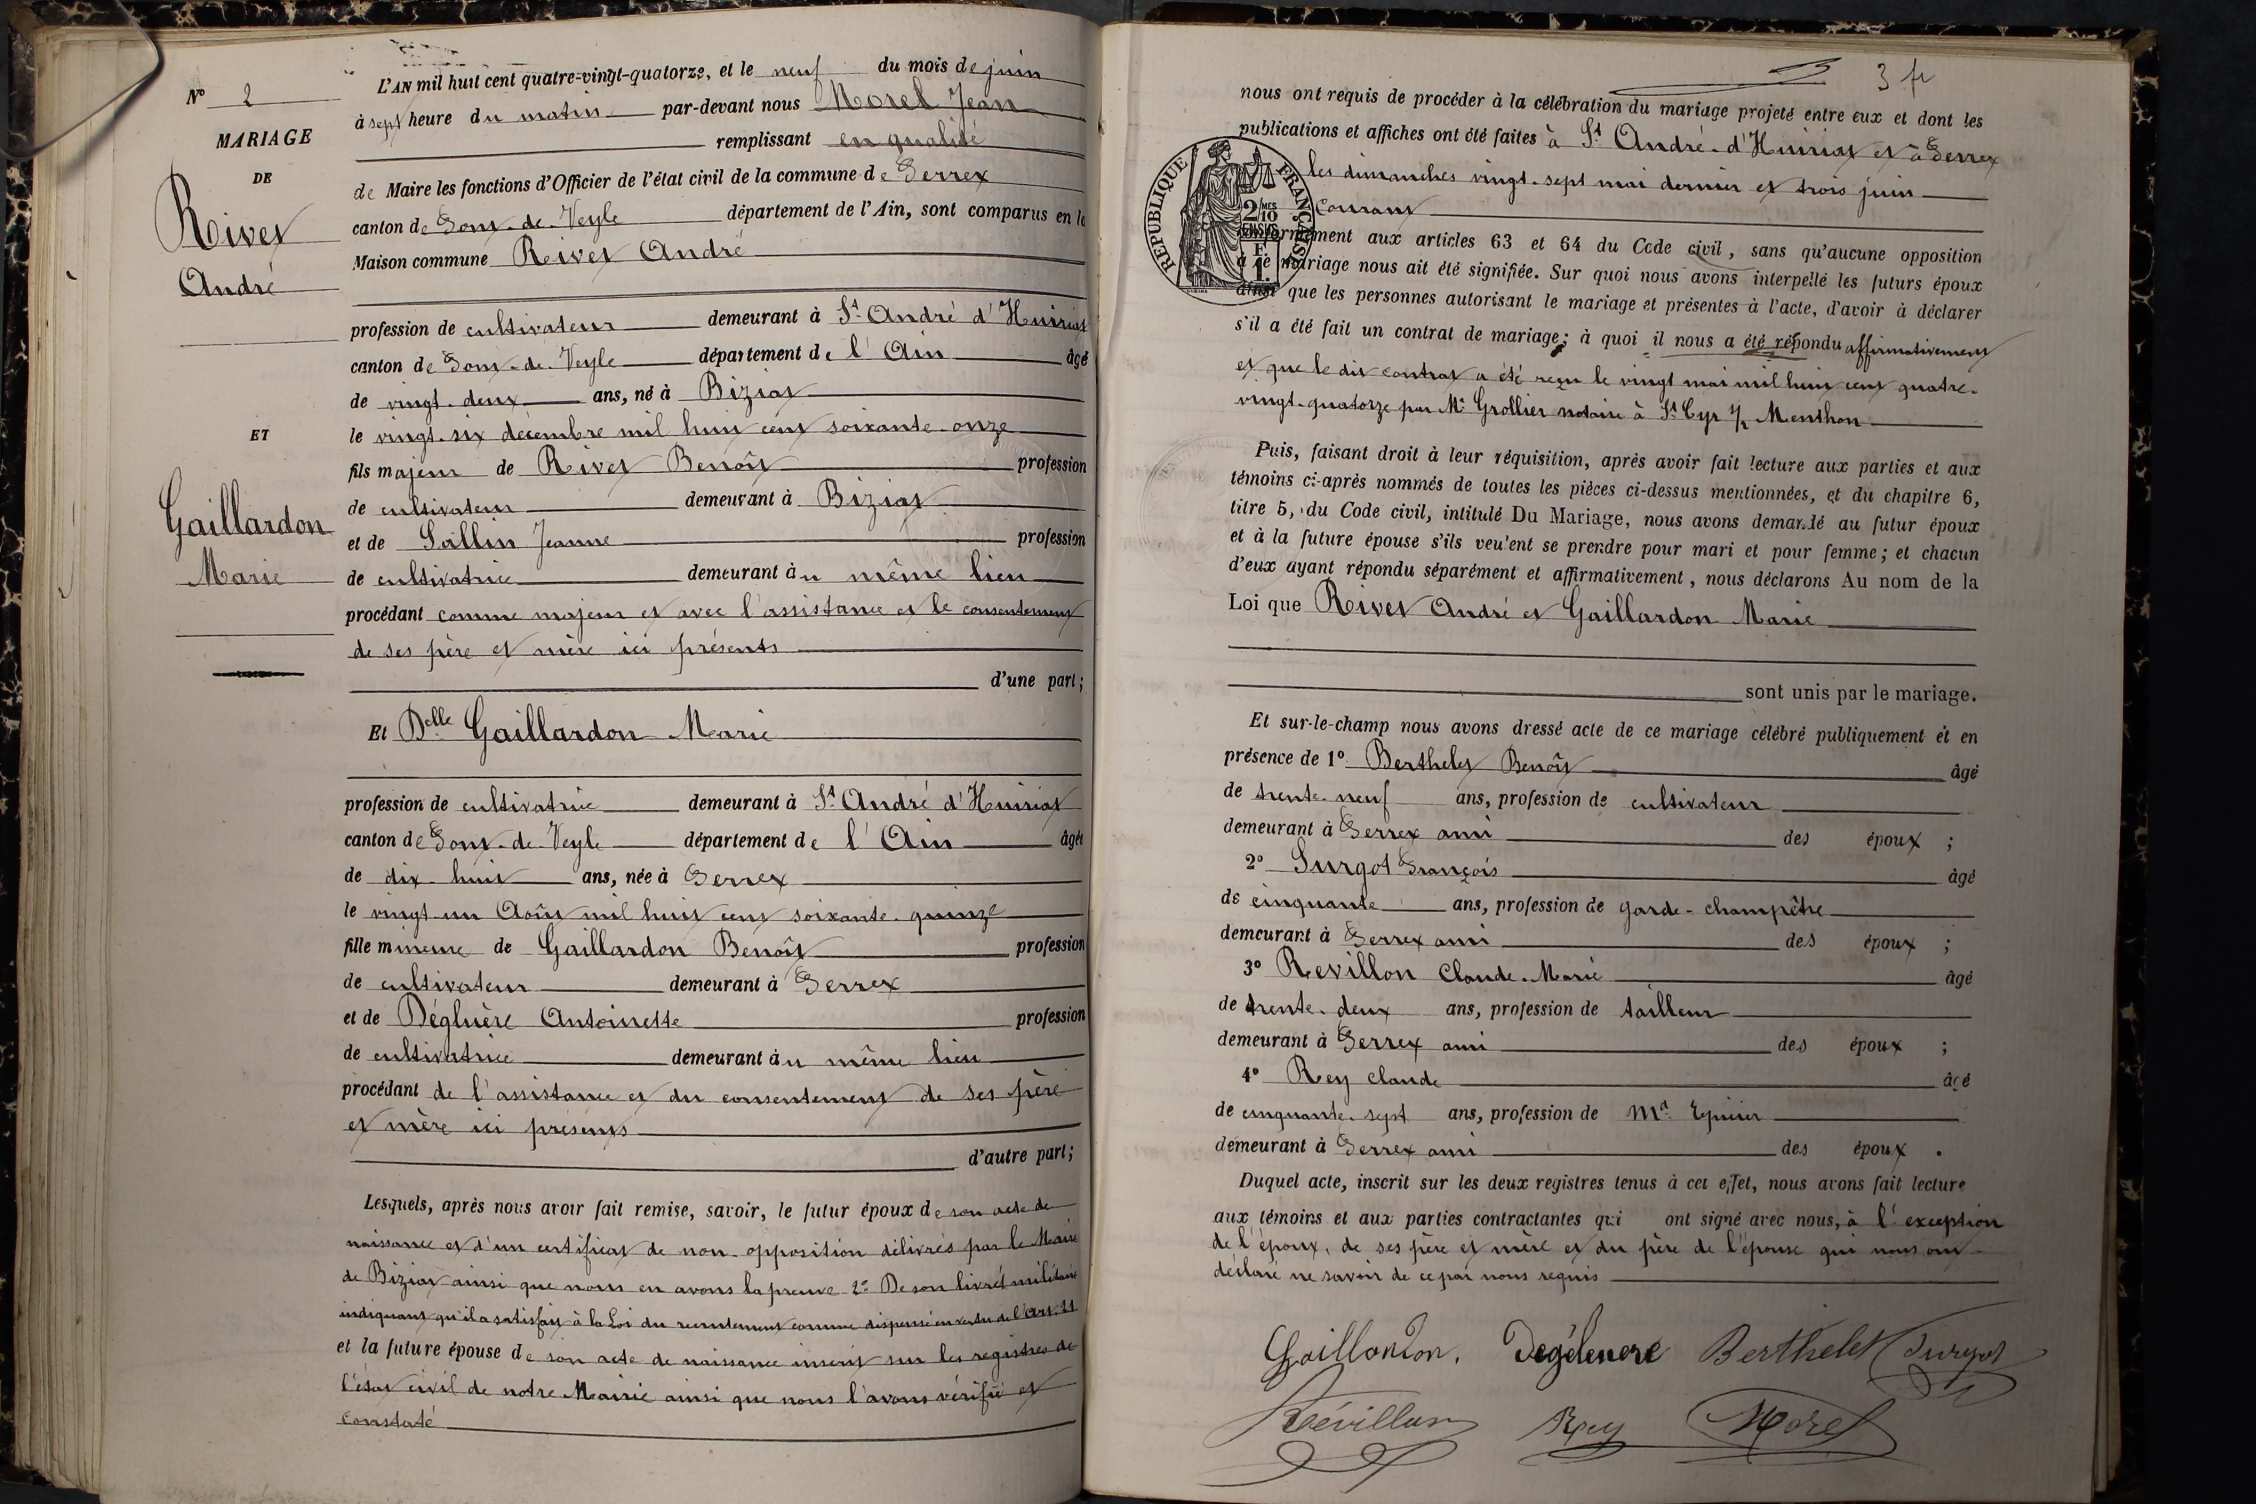 N° 2
MARIAGE
DE
Rivet
André
ET
Gaillardon
Marie
L'AN mil huit cent quatre-vingt-quatorze, et le neuf du mois de juin
à sept heure du matin par-devant nous Morel Jean
remplissant en qualité
de Maire les fonctions d'Officier de l'état civil de la commune de Perrex
canton de Pont-de-Veyle département de l'Ain, sont comparus en la
Maison commune Rivet André
profession de cultivateur demeurant à St André d'Huiriat
canton de Pont-de-Veyle département de l'Ain âgé
de vingt-deux ans, né à Biziat
le vingt-six décembre mil huit cent soixante-onze
fils majeur de Rivet Benoît profession
de cultivateur demeurant à Biziat
et de Sallin Jeanne profession
de cultivatrice demeurant au même lieu
procédant comme majeur et avec l'assistance et le consentement
de ses père et mère ici présents
d'une part;
Et Delle Gaillardon Marie
profession de cultivatrice demeurant à St André d'Huiriat
canton de Pont-de-Veyle département de l'Ain âgée
de dix-huit ans, née à Perrex
le vingt-un Août mil huit cent soixante-quinze
fille mineure de Gaillardon Benoît profession
de cultivateur demeurant à Perrex
et de Dégluère Antoinette profession
de cultivatrice demeurant au même lieu
procédant de l'assistance et du consentement de ses père
et mère ici présents
d'autre part;
Lesquels, après nous avoir fait remise, savoir, le futur époux de son acte de
naissance et d'un certificat de non-opposition délivrés par le Maire
de Biziat ainsi que nous en avons la preuve 2° De son livret militaire
indiquant qu'il a satisfait à la Loi du recrutement comme dispensé en vertu de l'Art. 21
et la future épouse de son acte de naissance inscrit sur les registres de
l'état civil de notre Mairie ainsi que nous l'avons vérifié et
constaté
3 fr
nous ont requis de procéder à la célébration du mariage projeté entre eux et dont les
publications et affiches ont été faites à St André-d'Huiriat et à Perrex
les dimanches vingt-sept mai dernier et trois juin
courant
REPUBLIQUE FRANÇAISE
2 MES 10
EN SUS
F
1.
conformément aux articles 63 et 64 du Code civil, sans qu'aucune opposition
à ce mariage nous ait été signifiée. Sur quoi nous avons interpellé les futurs époux
ainsi que les personnes autorisant le mariage et présentes à l'acte, d'avoir à déclarer
s'il a été fait un contrat de mariage; à quoi il nous a été répondu affirmativement
et que le dit contrat a été reçu le vingt mai mil huit cent quatre-
vingt-quatorze par Me Grollier notaire à St Cyr s/ Menthon
Puis, faisant droit à leur réquisition, après avoir fait lecture aux parties et aux
témoins ci-après nommés de toutes les pièces ci-dessus mentionnées, et du chapitre 6,
titre 5, du Code civil, intitulé Du Mariage, nous avons demandé au futur époux
et à la future épouse s'ils veulent se prendre pour mari et pour femme; et chacun
d'eux ayant répondu séparément et affirmativement, nous déclarons Au nom de la
Loi que Rivet André et Gaillardon Marie
sont unis par le mariage.
Et sur-le-champ nous avons dressé acte de ce mariage célébré publiquement et en
présence de 1° Berthelet Benoît âgé
de trente-neuf ans, profession de cultivateur
demeurant à Perrex ami des époux ;
2° Surgot François âgé
de cinquante ans, profession de garde-champêtre
demeurant à Perrex ami des époux ;
3° Revillon Claude-Marie âgé
de trente-deux ans, profession de tailleur
demeurant à Perrex ami des époux ;
4° Rey Claude âgé
de cinquante-sept ans, profession de Md Epicier
demeurant à Perrex ami des époux .
Duquel acte, inscrit sur les deux registres tenus à cet effet, nous avons fait lecture
aux témoins et aux parties contractantes qui ont signé avec nous, à l'exception
de l'époux, de ses père et mère et du père de l'épouse qui nous ont
déclaré ne savoir de ce par nous requis
Gaillardon. Degeluere Berthelet Surgot
Révillon Rey Morel